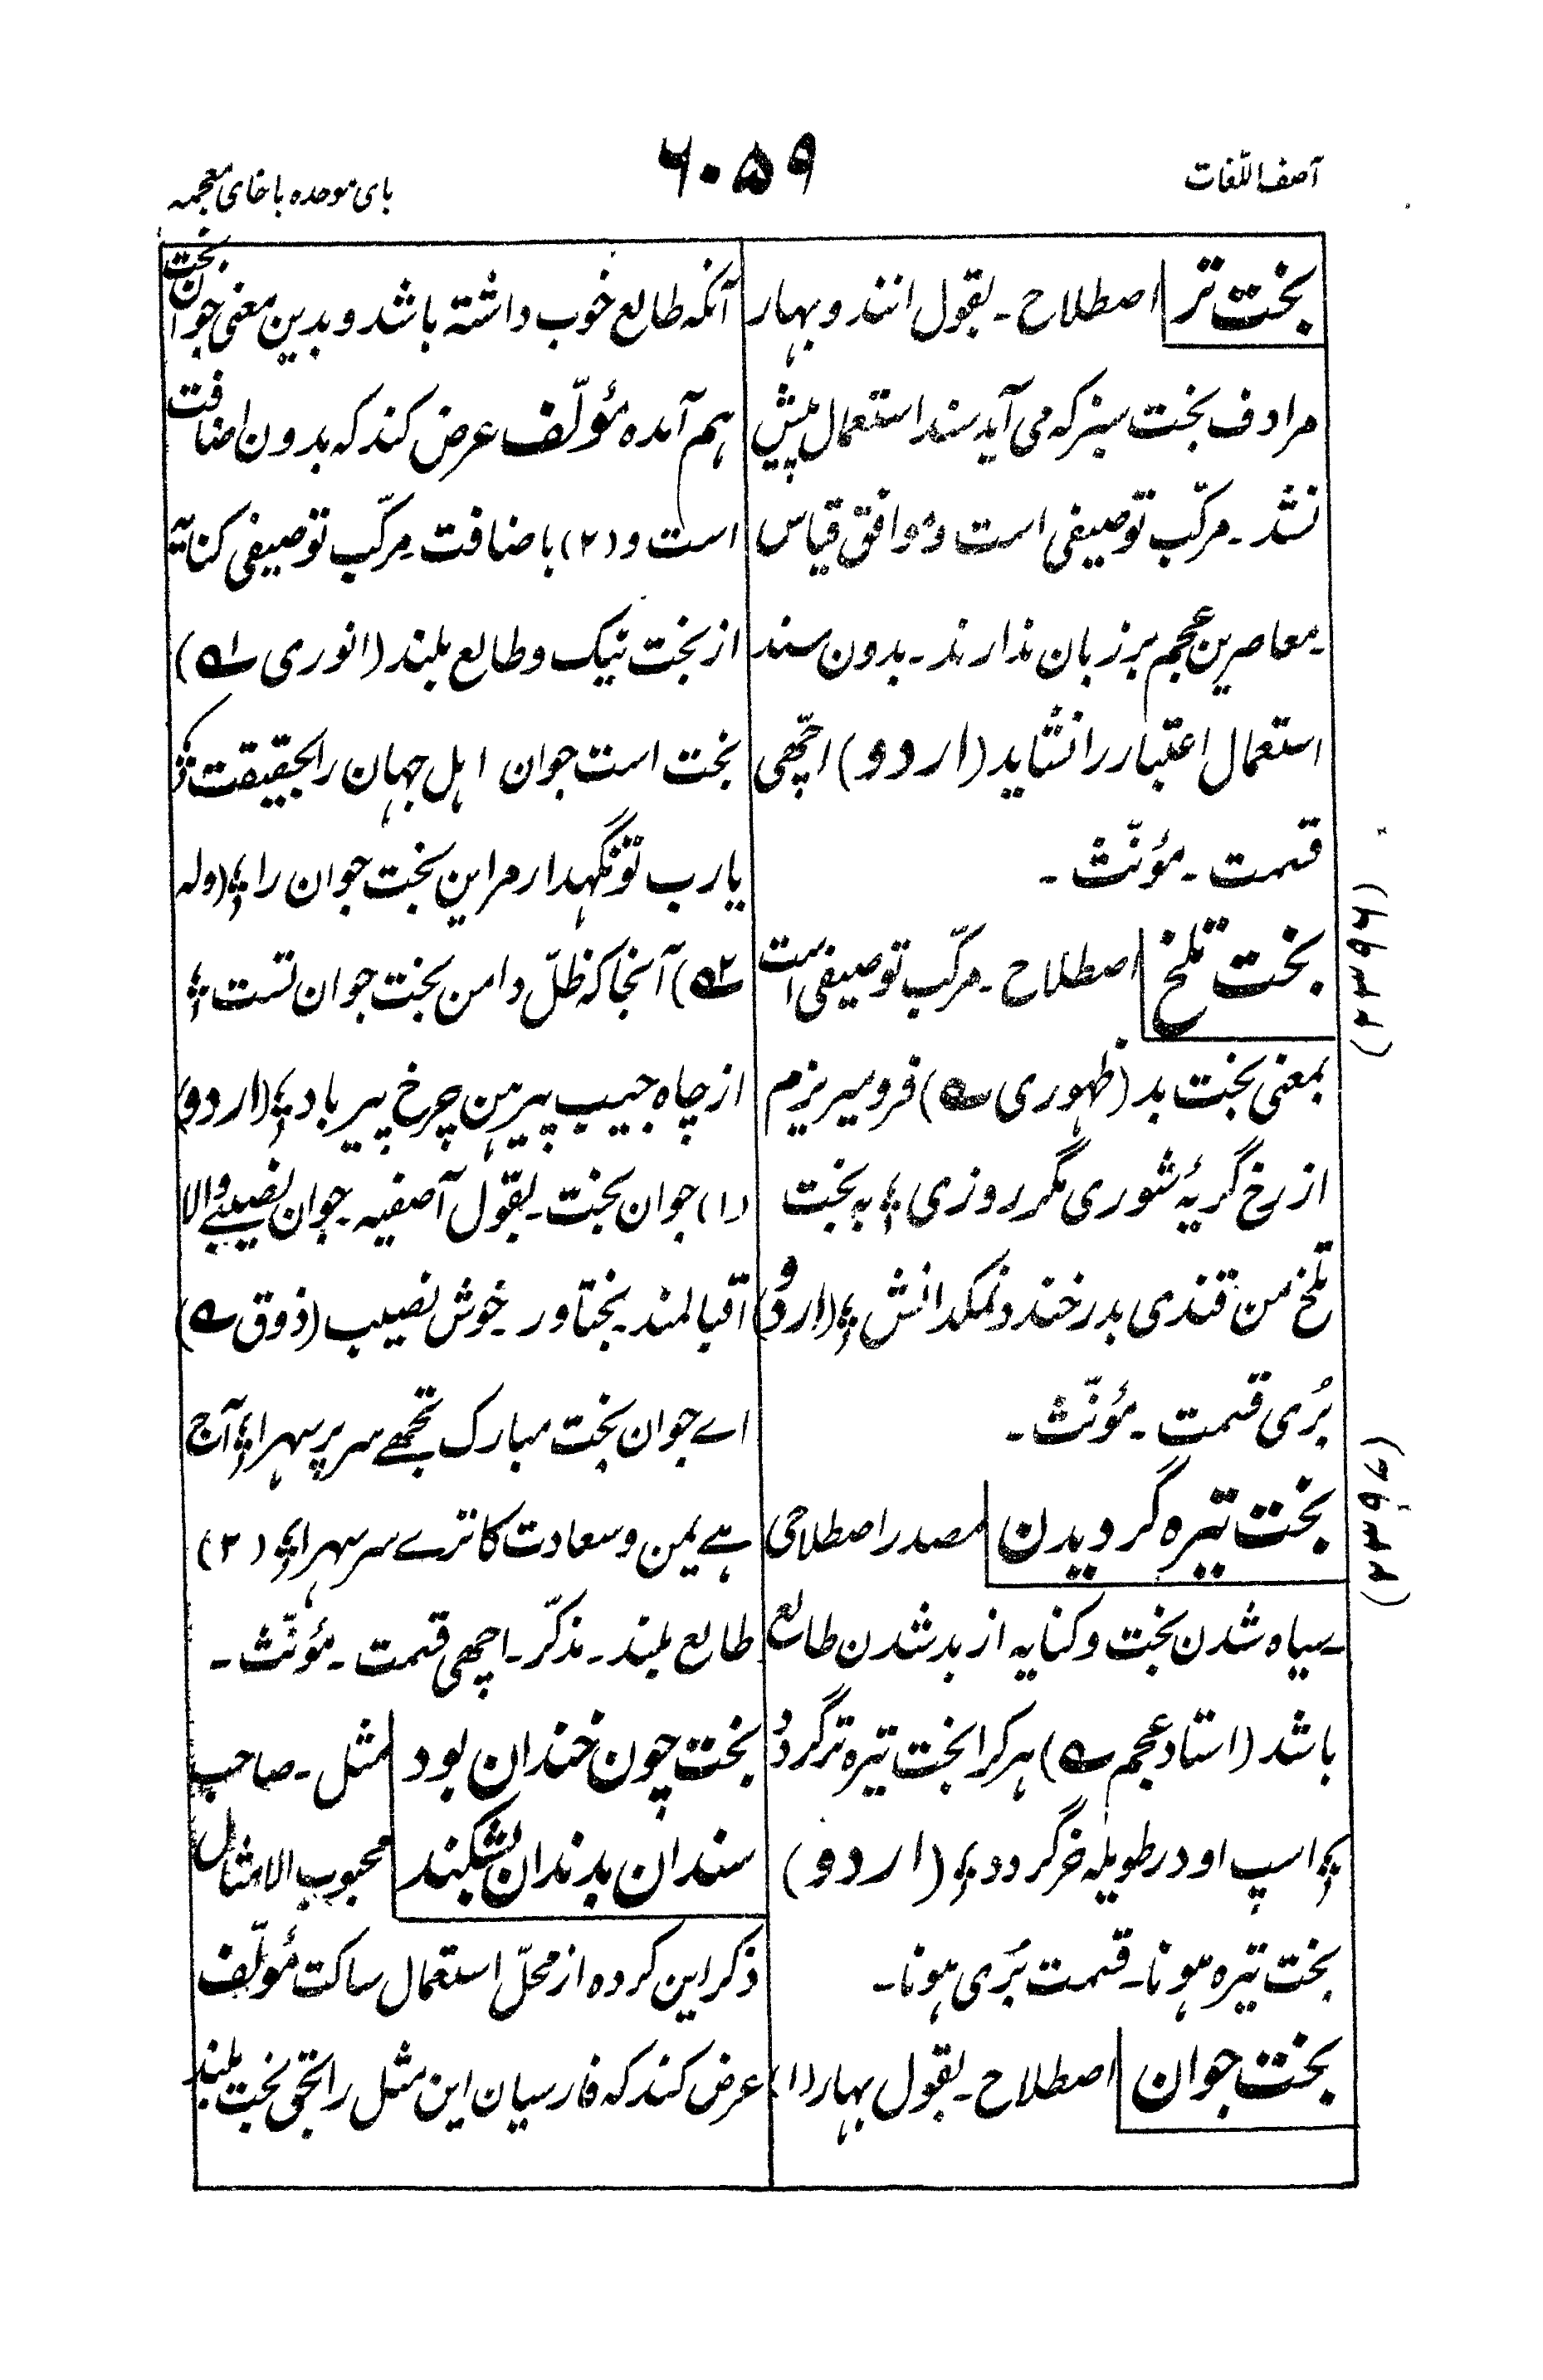 آصف اللغات
۶۰۵۹
بای موحده با خای معجمه
بخت تر اصطلاح ۔ بقول انند و بهار
مرادف بخت سبز که می آید سند استعمال پیش
نشد ۔ مرکّب توصیفی است و موافق قیاس
معاصرین عجم بر زبان ندارند ۔ بدون سند
استعمال اعتبار را نشاید (اردو) اچّھی
قسمت ۔ مؤنّث ۔
بخت تلخ اصطلاح ۔ مرکّب توصیفی است
بمعنی بخت بد (ظهوری ؎) فرو میریزم
از رخ گریهٔ شوری مگر روزی ؛ به بخت
تلخ من قندی بدر خندد نمکدانش ؛ (اردو)
بُری قسمت ۔ مؤنّث ۔
بخت تیره گردیدن مصدر اصطلاحی
سیاه شدن بخت و کنایه از بد شدن طالع
باشد (استاد عجم ؎) هر کرا بخت تیره تر گردد
؛ اسپ او در طویله خر گردد ؛ (اردو)
بخت تیرہ ہونا ۔ قسمت بُری ہونا ۔
بخت جوان اصطلاح ۔ بقول بهار (۱)
آنکه طالع خوب داشته باشد و بدین معنی جوان بخت
هم آمده مؤلّف عرض کند که بدون اضافت
است و (۲) باضافت مرکّب توصیفی کنایه
از بخت نیک و طالع بلند (انوری ؎۱)
بخت است جوان اهل جهان را بحقیقت ؛
یارب تو نگهدار مر این بخت جوان را ؛ (وله
؎۲) آنجا که ظلّ دامن بخت جوان تست ؛
از چاه جیب پیرهن چرخ پیر باد ؛ (اردو)
(۱) جوان بخت ۔ بقول آصفیہ ۔ جوان نصیبے والا
اقبالمند ۔ بختاور ۔ خوش نصیب (ذوق ؎)
اے جوان بخت مبارک تجھے سر پر سہرا ؛ آج
ہے یمن و سعادت کا ترے سر سہرا ؛ (۲)
طالع بلند ۔ مذکّر ۔ اچھی قسمت ۔ مؤنّث ۔
بخت چون خندان بود مثل ۔ صاحب
سندان بدندان بشکند محبوب الامثال
ذکر این کرده از محلّ استعمال ساکت مؤلّف
عرض کند که فارسیان این مثل را بحق بخت بلند
(۲۳۹۶)
(۲۳۹۷)